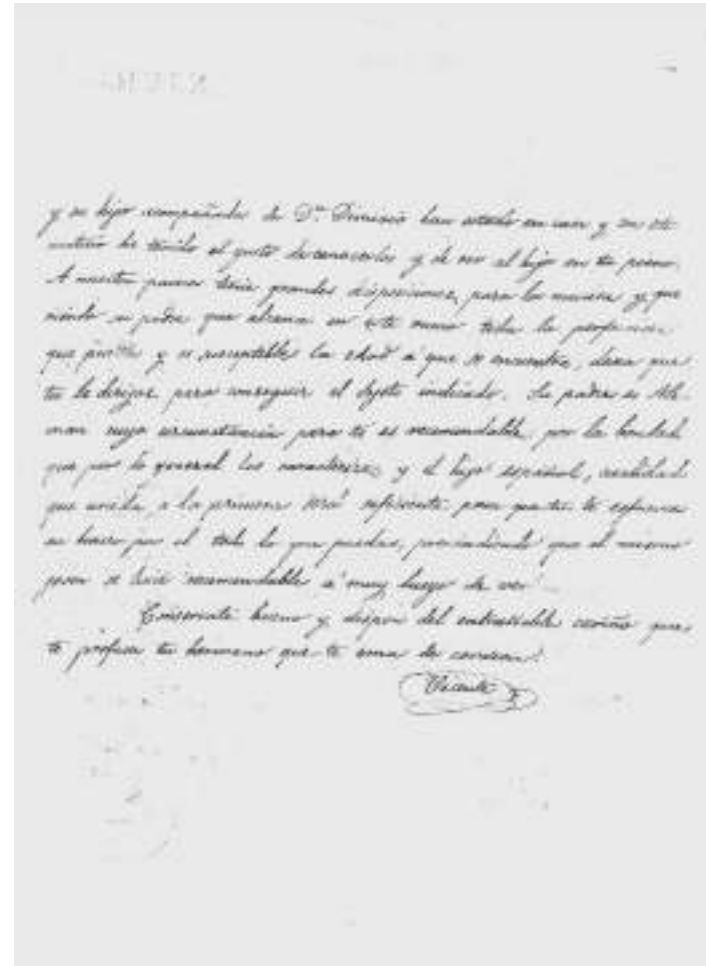 y su hijo compañado de Dn. Dionisio han estado en casa y con este
motivo he tenido el gusto de conocerlos y de ver al hijo en tu piano.
A nuestro parecer tiene grandes disposiciones para la musica y que
riendo su padre que alcance en este ramo toda la perfeccion
que posible y es susceptible la edad á que se encuentra, desea que
tu le dirijas para conseguir el objeto indicado. Su padre es Ale
man cuya circunstancia para tí es recomendable, por la bondad
que por lo general los caracteriza, y el hijo español, cualidad
que unida a la primera será suficiente para que tu te esfuerces
en hacer por el todo lo que puedas, prescindiendo que el mismo
joven se hará recomendable á muy luego de ver
Consérvate bueno y dispon del entrañable cariño que
te profesa tu hermano que te ama de corazon.
Vicente